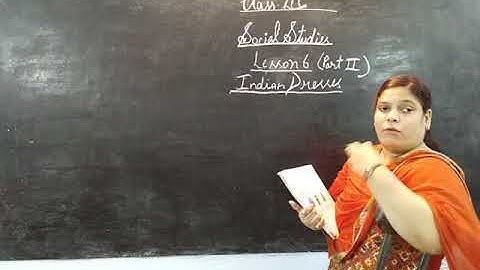 Class
Social Studies
Lesson 6 (Part II)
Indian Dresses